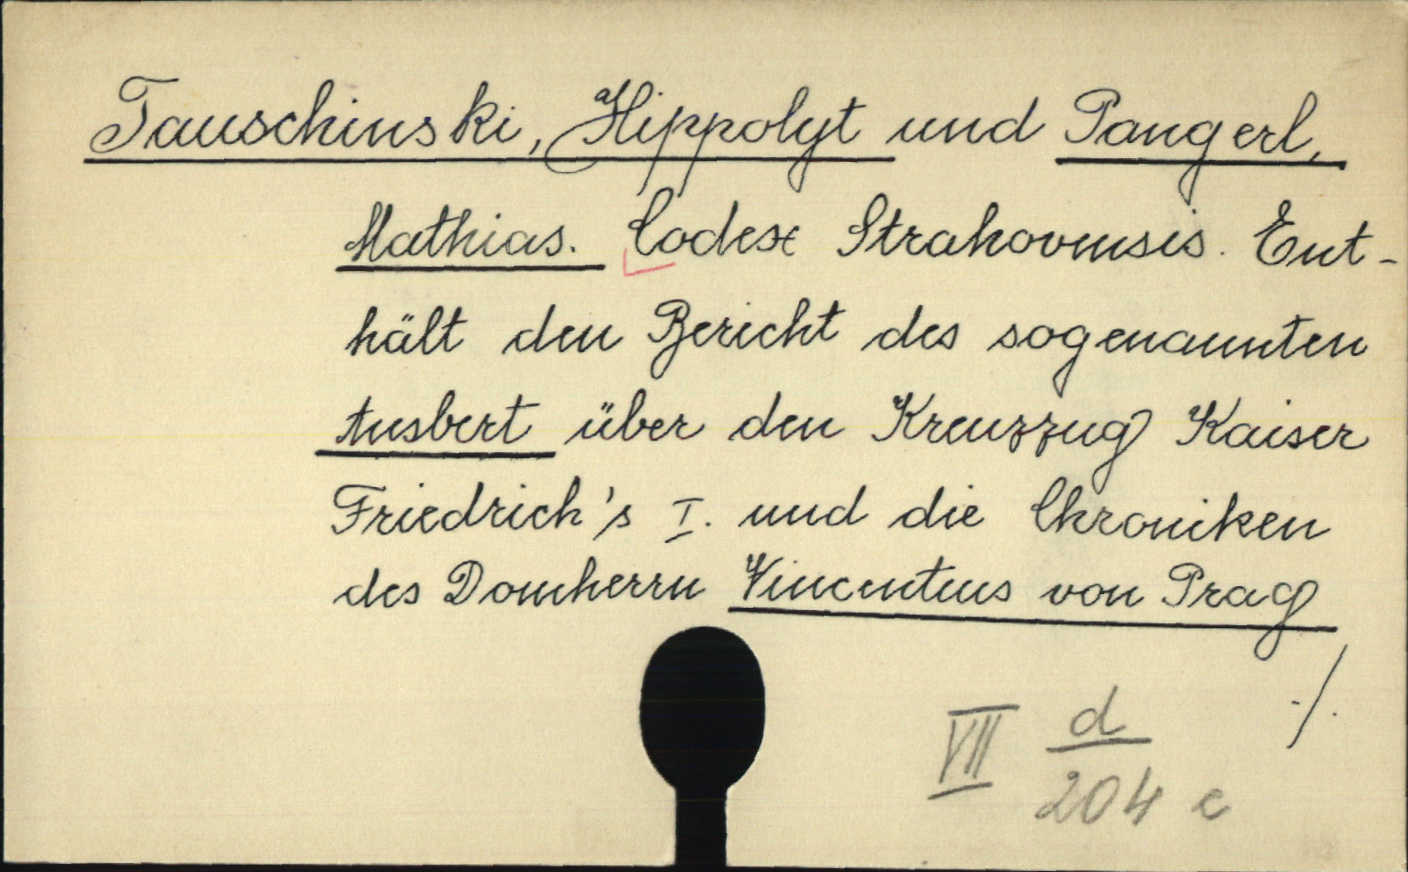 Tauschinski, Hippolyt und Pangerl,
Mathias. Codex Strahovensis. Ent-
hält den Bericht des sogenannten
Ansbert über den Kreuzzug Kaiser
Friedrich's I. und die Chroniken
des Domherrn Vincentius von Prag
./.
VII d
204 c